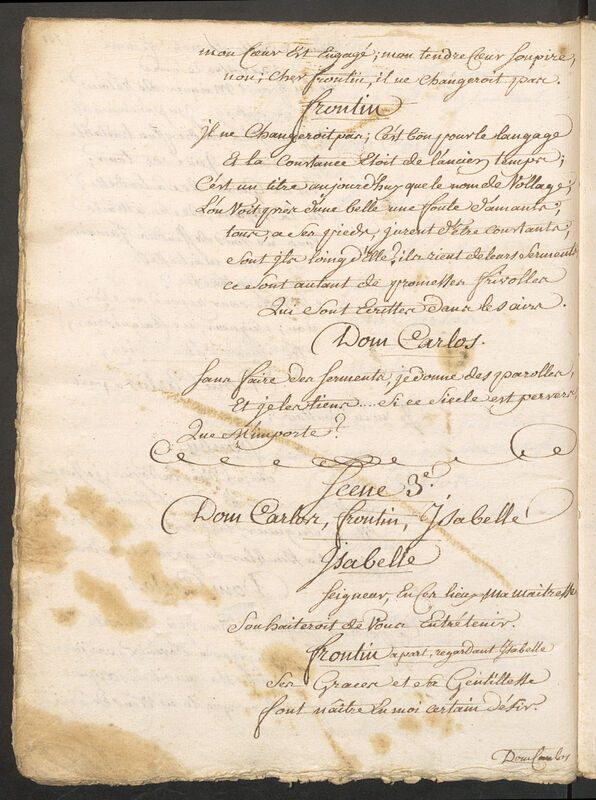 mon Cœur Est Engagé; mon tendre Cœur soupire,
non; Cher frontin, il ne Changeroit pas.
frontin
il ne Changeroit pas; C'est bon pour le langage
Et la Constance Etoit de l'ancien temps;
C'est un titre aujourd'huy que le nom de Vollage;
L'on Voit près d'une belle une foule d'amants,
tous, a ses pieds, jurent d'être constants,
sont ils loing d'Elle? ils rient de leurs serments
ce sont autant de promesses frivolles
Qui sont Ecrittes dans les airs.
Dom Carlos.
sans faire des serments, je donne des parolles,
Et je les tiens.... si ce siecle est pervers,
Que M'importe?
Scene 3.e
Dom Carlos, frontin, Ysabelle
Ysabelle
Seigneur, En Ces lieux, ma maitresse
Souhaiteroit de Vous Entretenir.
frontin apart, regardant Ysabelle
Ses Graces et sa Gentillesse
font naître En moi certain désir.
Dom Carlos